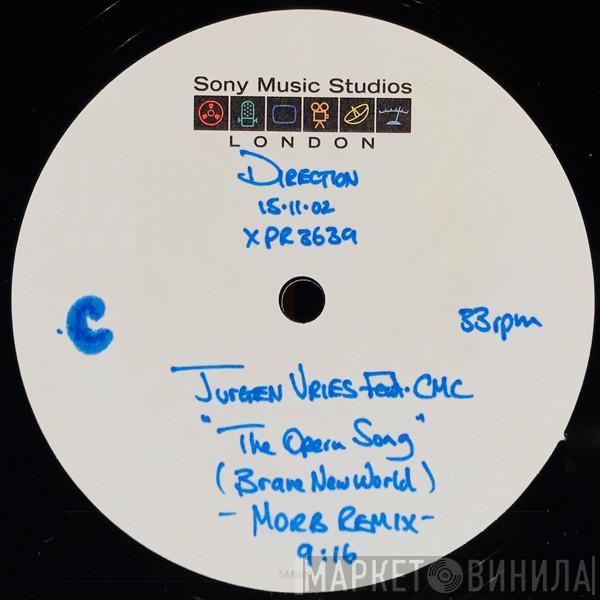 Sony Music Studios
LONDON
DIRECTION
15.11.02
XPR3639
C
33rpm
JURGEN VRIES Feat. CMC
"The Opera Song"
(Brave New World)
- MORB REMIX -
9:16
МАРКЕТ ВИНИЛА